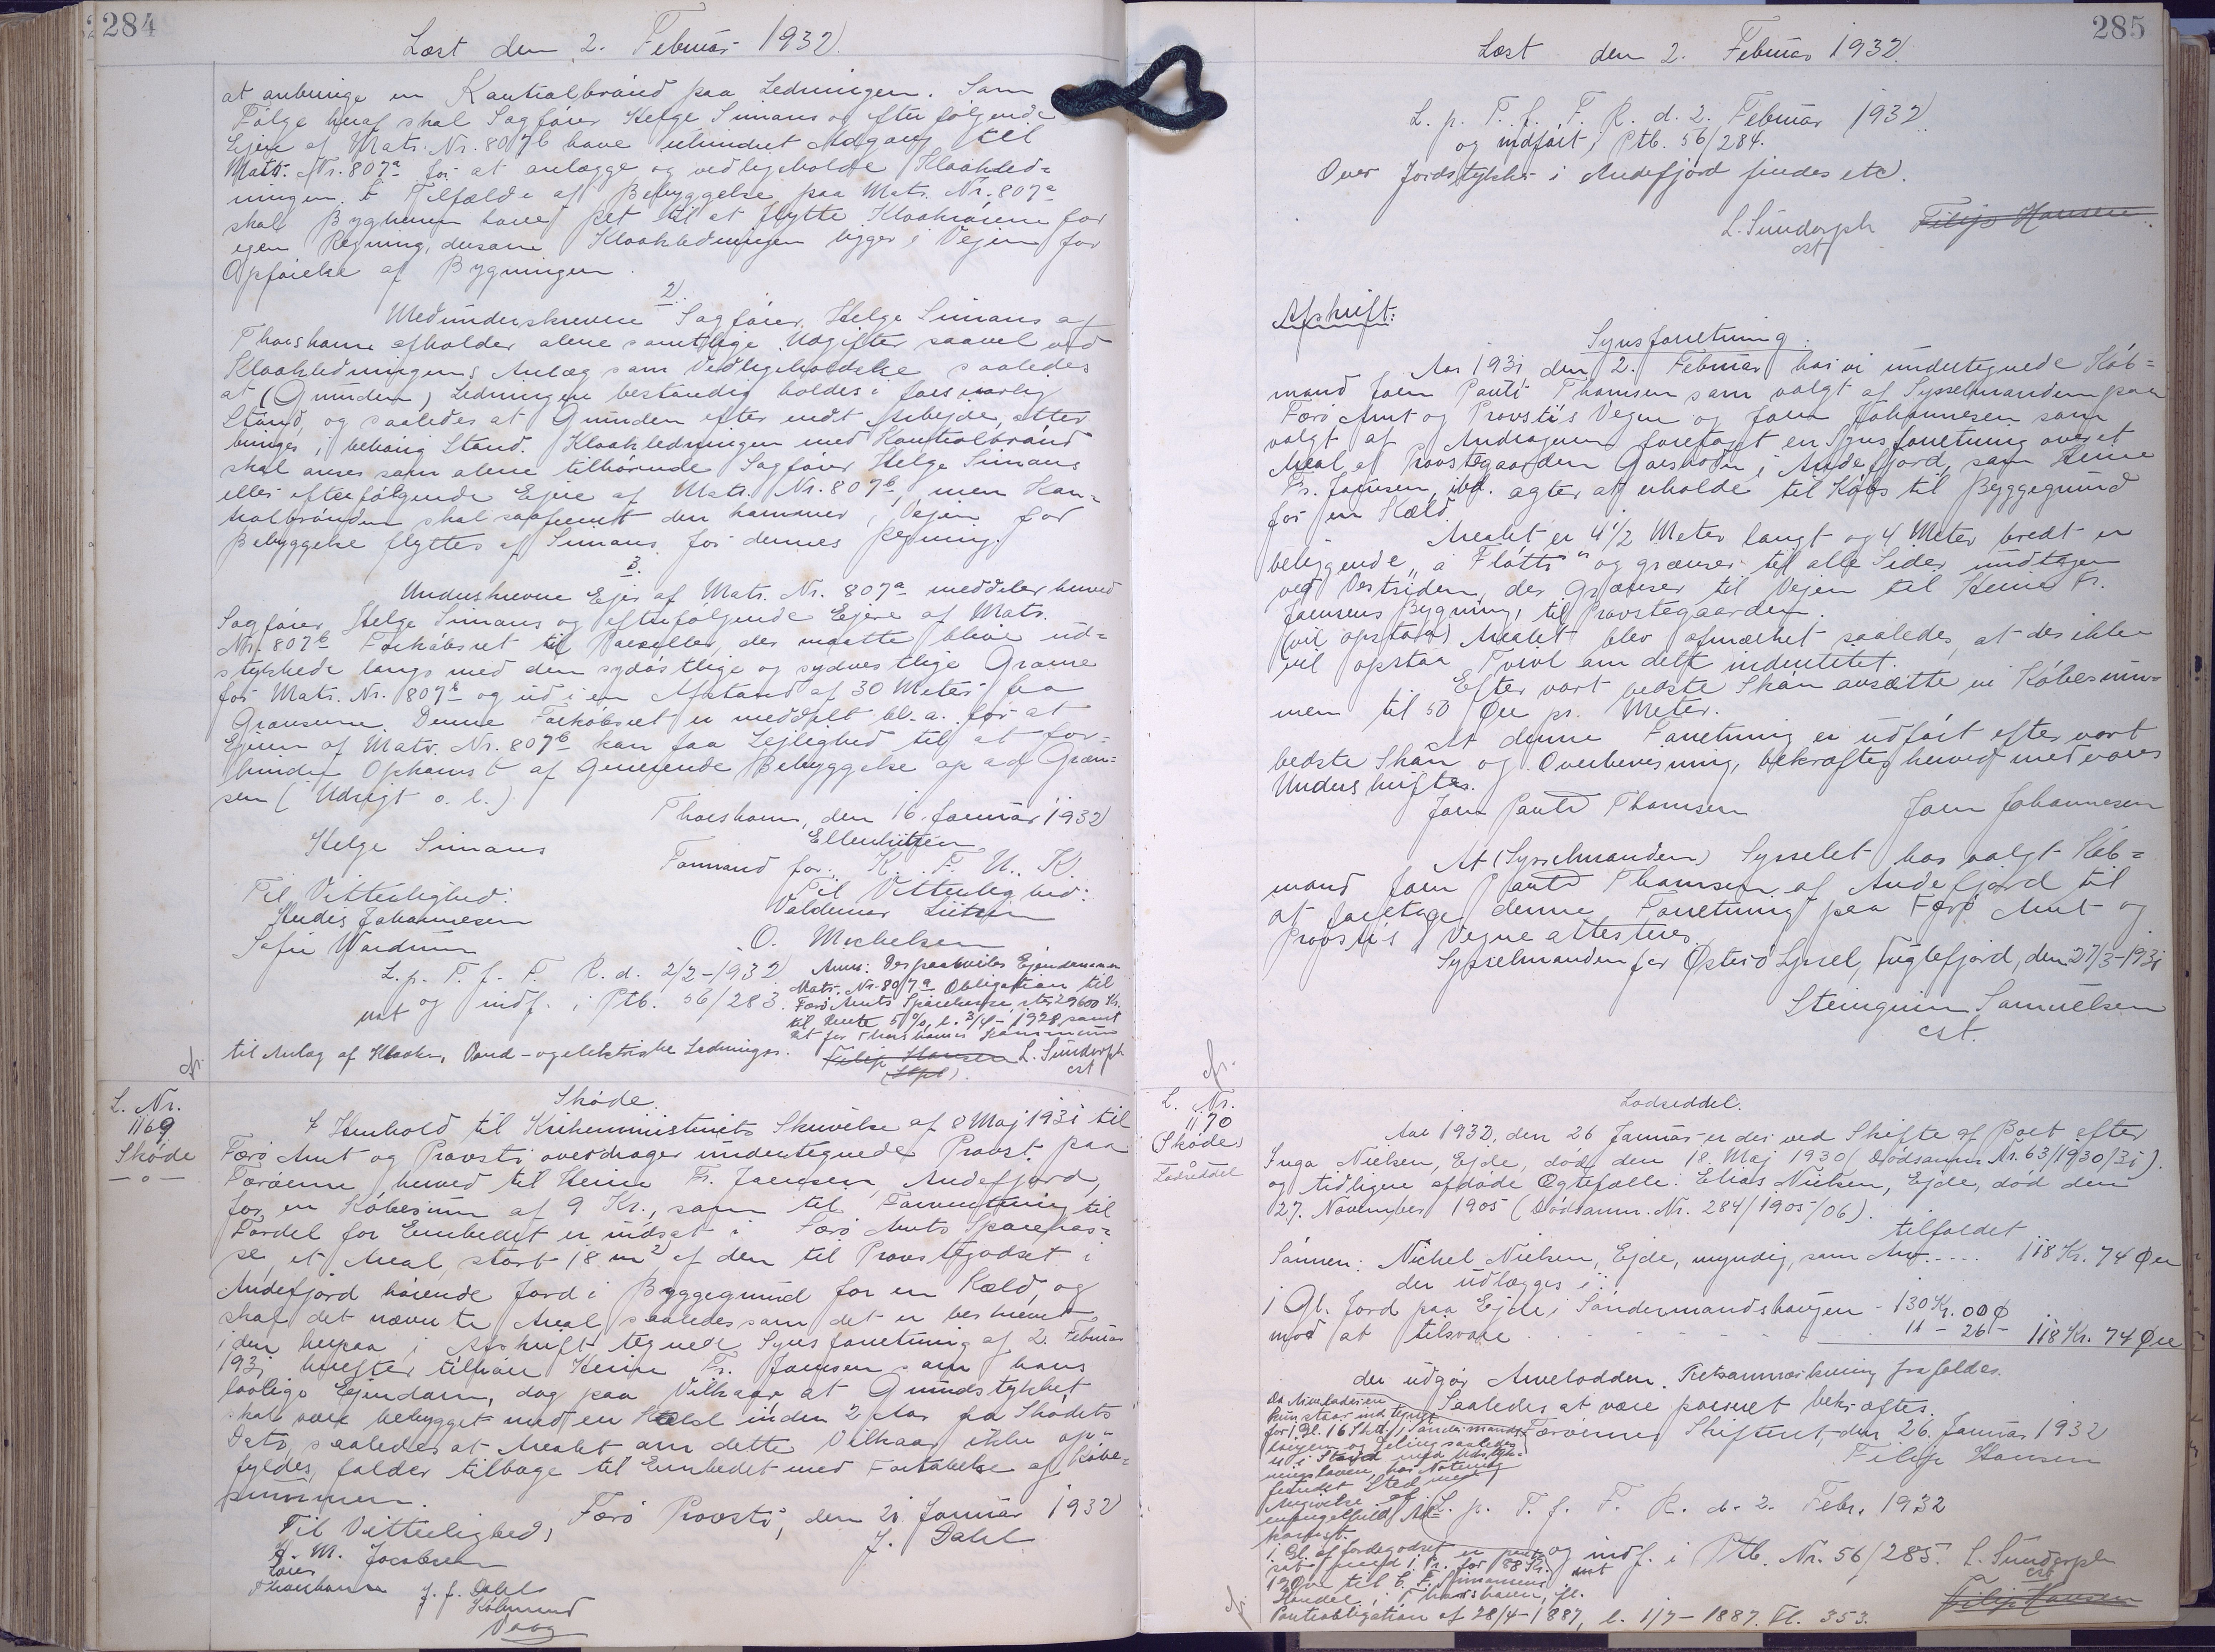 284
Læst den 2. Februar 1932.
at anbringe en Kontrolbrønd paa Ledningen. Som
Følge heraf skal Sagfører Helge Simans og efterfølgende
Ejere af Matr. Nr. 807b have uhindret Adgang til
Matr. Nr. 807a for at anlægge og vedligeholde Kloakled=
ningen. I Tilfælde af Bebyggelse paa Matr. Nr. 807a
skal Bygherren have Ret til at flytte Kloakrørene for
egen Regning, dersom Kloakledningen ligger i Vejen for
Opførelse af Bygningen.
2)
Medunderskrevne Sagfører Helge Simans af
Thorshavn afholder alene samtlige Udgifter saavel ved
Kloakledningens Anlæg som Vedligeholdelse saaledes
at (Grunden) Ledningen bestandig holdes i forsvarlig
Stand, og saaledes at Grunden efter endt Arbejde atter
bringes i behørig Stand. Kloakledningen med Kontrolbrønd
skal anses som alene tilhørende Sagfører Helge Simans
eller efterfølgende Ejere af Matr. Nr. 807b, men Kon=
trolbrønden skal saafremt den kommer i Vejen for
Bebyggelse flyttes af Simans for dennes Regning.
3.
Underskrevne Ejer af Matr. Nr. 807a meddeler herved
Sagfører Helge Simans og efterfølgende Ejere af Matr.
Nr. 807b Forkøbsret til Parceller, der maatte blive ud=
stykkede langs med den sydøstlige og sydvestlige Grænse
for Matr. Nr. 807b og ud i en Afstand af 30 Meter fra
Grænserne. Denne Forkøbsret er meddelt bl. a. for at
Ejeren af Matr. Nr. 807b kan faa Lejlighed til at for=
hindre Opkomst af generende Bebyggelse op ad Græn=
sen (Udsigt o. l.)
Thorshavn, den 16. Januar 1932
Helge Simans
Formand for: K. F. U. K.
Til Vitterlighed:
Til Vitterlighed:
Johannesen
Valdemar Lützen
O. Michelsen
L. p. T. f. F. R. d. 2/2-1932
Anm: Der paahviler Ejendommen
Matr. Nr. 807a Obligation til
Færø Amts Sparekasse, str. 29600 Kr.
ust og indf. i Ptb. 56/283.
til Rente 5%, l. 3/4-1928 samt
Ret for Thorshavns Kommune
til Anlæg af Kloak, Vand- og elektriske Ledninger.
Filip Hansen L. Sundorph
cst
L. Nr.
1169
Skøde
Skøde.
I Henhold til Kirkeministeriets Skrivelse af 8 Maj 1931 til
Færø Amt og Provsti overdrager undertegnede Provst paa
Færøerne herved til Heine Fr. Joensen, Andefjord,
for en Købesum af 9 Kr., som til Forrentning til
Fordel for Embedet er indsat i Færø Amts Sparekas=
se, et Areal, stort 18 m2 af den til Provstegodset i
Andefjord hørende Jord i Byggegrund for en Kæld, og
skal det nævnte Areal saaledes som det er beskrevet
i den herpaa i Afskrift tegnede Synsforretning af 2. Februar
1931 herefter tilhøre Heine Fr. Joensen som hans
lovlige Ejendom, dog paa Vilkaar at Grundstykket
skal være bebygget med en Kæld inden 2 Aar fra Skødets
Dato, saaledes at Arealet om dette Vilkaar ikke op=
fyldes, falder tilbage til Embedet med Fortabelse af Købe=
summen.
Færø Provsti, den 21 Januar 1932
Til Vitterlighed,
J. Dahl
M. Jacobsen
Thorshavn
J. J. Dahl
Købmand
Vaag
285
Læst den 2. Februar 1932.
L. p. T. f. F. R. d. 2. Februar 1932
og indført i Ptb. 56/284.
Over Jordstykker i Andefjord findes etc.
L. Sundorph Filip Hansen
cst
Afskrift:
Synsforretning.
Aar 1931 den 2. Februar har vi undertegnede Køb=
mand Joen Pauli Thomsen som valgt af Sysselmanden paa
Færø Amt og Provsti's Vegne og Joen Johannesen som
valgt af Andrageren foretaget en Synsforretning over et
Areal af Provstegaarden i Andefjord, som Heine
Fr. Joensen, ibd. agter at erholde til Købs til Byggegrund
for en Kæld.
Arealet er 4 1/2 Meter langt og 4 Meter bredt er
beliggende „á Fløtti“ og grænser til alle Sider undtagen
ved Vestsiden, der grænser til Vejen til Heine Fr.
Joensens Bygning, til Provstegaarden.
(vil opstaa) Arealet blev afmærket saaledes, at der ikke
vil opstaa Tvivl om dets indentitet.
Efter vort bedste Skøn ansætte vi Købesum=
men til 50 Øre pr. Meter.
At denne Forretning er udført efter vort
bedste Skøn og Overbevisning, bekræftes herved med vores
Underskrifter.
Joen Pauli Thomsen Joen Johannesen
At (Sysselmanden) Sysselet har valgt Køb=
mand Joen Pauli Thomsen af Andefjord til
at foretage denne Forretning paa Færø Amt og
Provsti's Vegne attesteres.
Sysselmanden for Østerø Syssel, Fuglefjord, den 27/3-1931
Steingrim Samuelsen
cst.
L. Nr.
1170
(Skøde)
Lodseddel
Lodseddel.
Aar 1932, den 26 Januar er der ved Skifte af Boet efter
Inga Nielsen, Ejde, død den 18. Maj 1930 (Dødsanm. Nr. 63/1930/31).
og tidligere afdøde Ægtefælle: Elias Nielsen, Ejde, død den
27. November 1905 (Dødsanm. Nr. 284/1905/06).
tilfaldet
Sønnen: Nichel Nielsen, Ejde, myndig, som Arv..... 118 Kr. 74 Øre
der udlægges i:
1 Gl. Jord paa Ejde i Søndermandshaugen - 130 Kr. 00 Ø
mod at tilsvare - - - - - 11 - 26 - 118 Kr. 74 Øre
der udgør Arvelodden. Retsanmærkning frafaldes.
Saaledes at være passeret bekræftes.
Færøernes Skifteret, den 26. Januar 1932
Filip Hansen
Da Arveladeren
kun staar indtegnet
for 1 Gl. 16 Sk. i Søndermands=
haugen og Deling saaledes
er i Strid med Udstyk=
ningsloven, har Notering
fundet Sted med
Angivelse af
L. p. T. f. F. R. d. 2. Febr. 1932
ust og indf. i Ptb. Nr. 56/285. L. Sundorph
cst
Filip Hansen
Handel i Thorshavn, fl.
Panteobligation af 28/4-1887, l. 1/7-1887. Fl. 353.